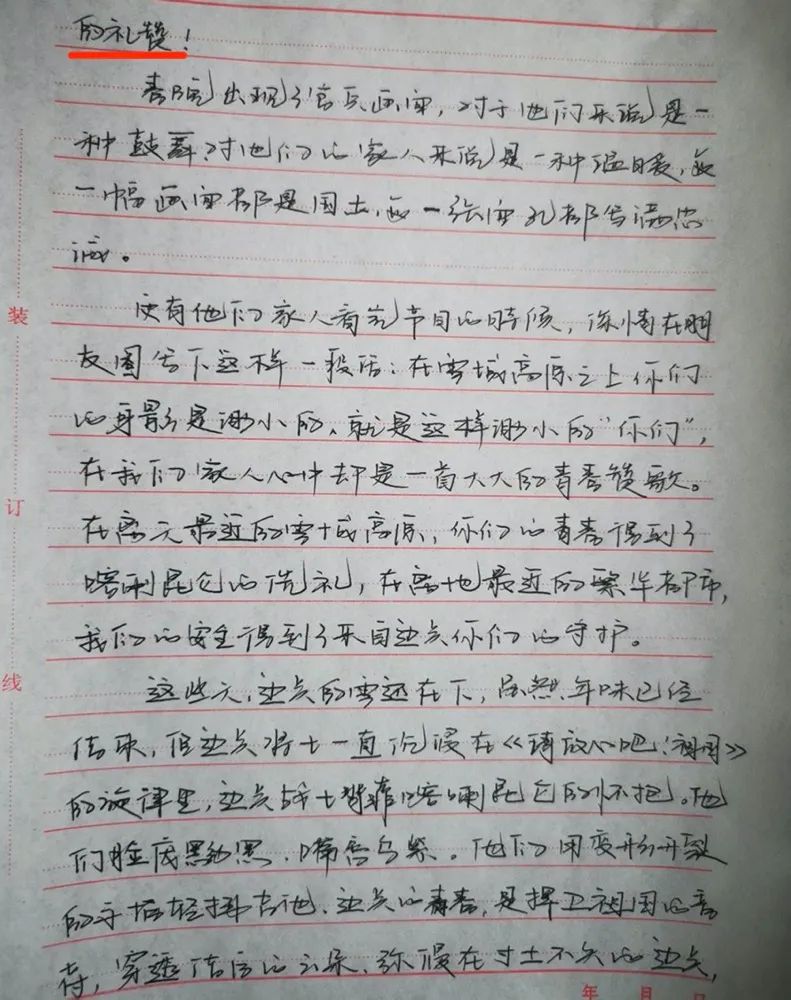 的礼赞！
春晚出现了官兵画面，对于他们来说是一
种鼓舞，对他们的家人来说是一种温暖，每
一幅画面都是国土，每一张面孔都写满忠
诚。
更有他们家人看完节目的时候，深情在朋
友圈写下这样一段话：在雪域高原之上你们
的身影是渺小的，就是这样渺小的“你们”，
在我们家人心中却是一首大大的青春赞歌。
在离天最近的雪域高原，你们的青春得到了
喀喇昆仑的洗礼，在离地最近的繁华都市，
我们的安全得到了来自边关你们的守护。
这些天，边关的雪还在下，虽然年味已经
传来，但边关将士一直沉浸在《请放心吧！祖国》
的旋律里，边关战士背靠喀喇昆仑的怀抱。他
们脸庞黝黑，嘴唇乌紫。他们用变形开裂
的手指轻弹吉他，边关的青春，是捍卫祖国的音
符，穿透的云朵，弥漫在寸土不失的边关，
装
订
线
年 月 日